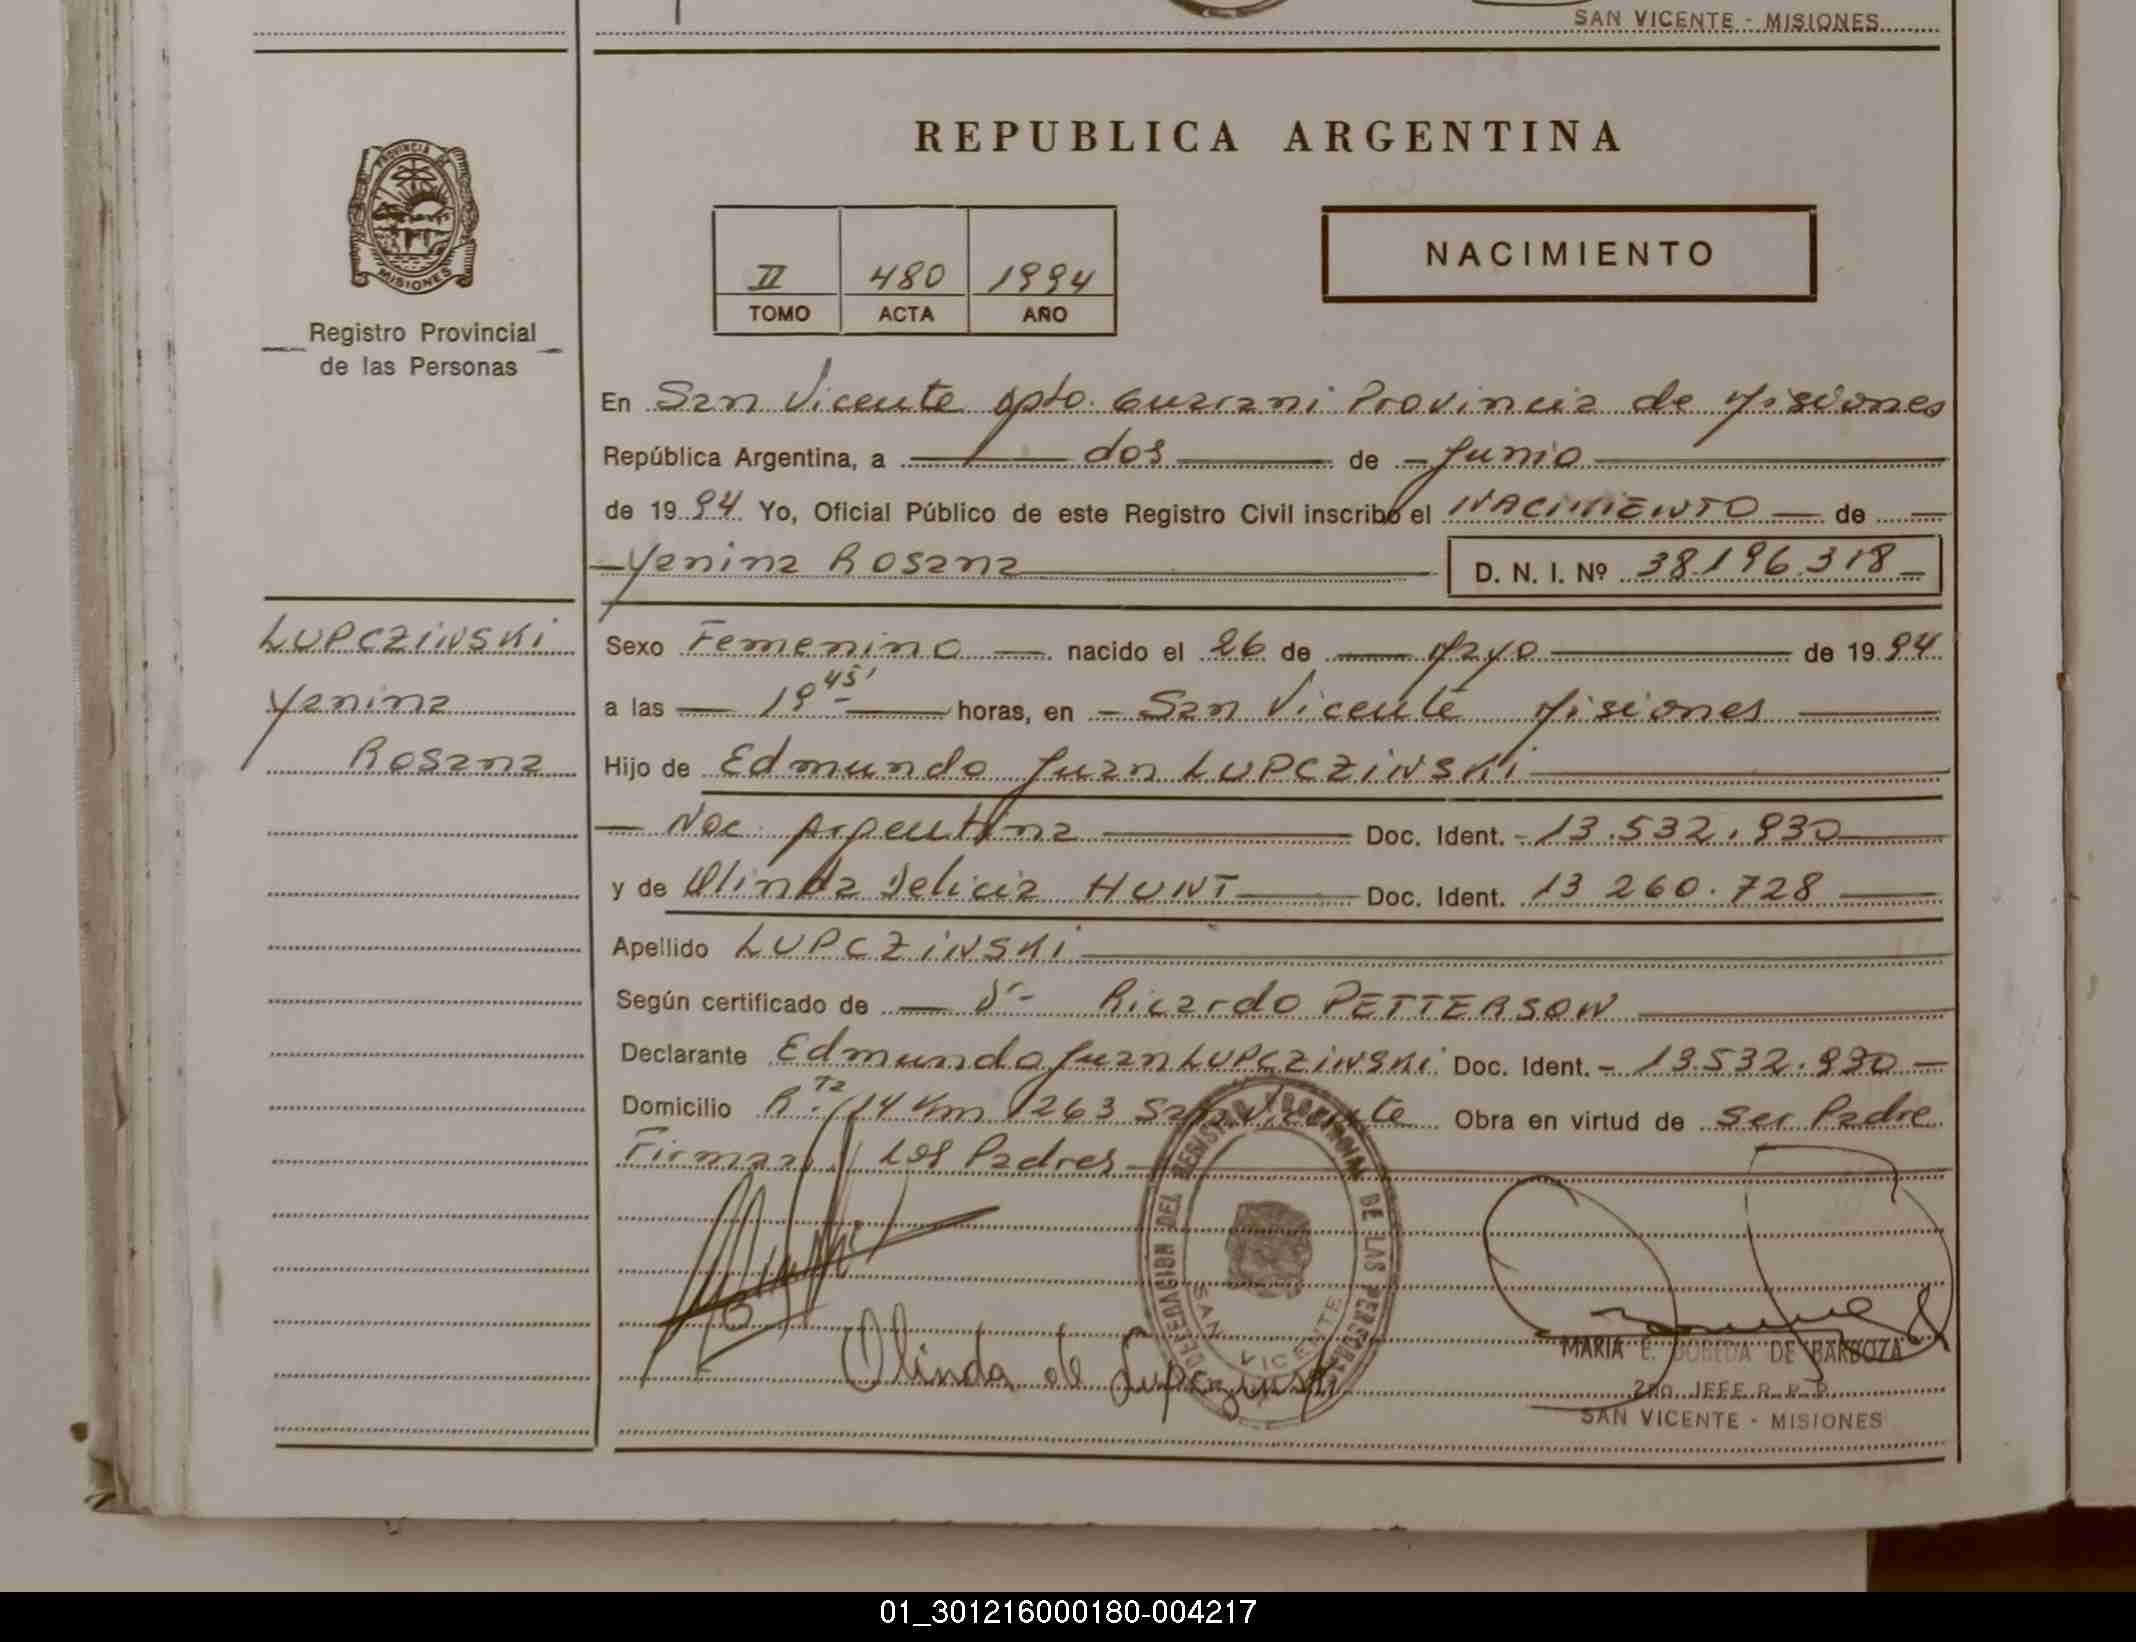 SAN VICENTE - MISIONES
REPUBLICA ARGENTINA
PROVINCIA DE MISIONES
Registro Provincial
de las Personas
II 480 1994
TOMO ACTA AÑO
NACIMIENTO
En San Vicente Dpto. Guarani Provincia de Misiones
República Argentina, a dos de Junio
de 1994 Yo, Oficial Público de este Registro Civil inscribo el NACIMIENTO de
Yanina Rosana D. N. I. Nº 38.196.318
LUPCZINSKI
Yanina
Rosana
Sexo Femenino nacido el 26 de Mayo de 1994
a las 19 45' horas, en San Vicente Misiones
Hijo de Edmundo Juan LUPCZINSKI
Nac. Argentina Doc. Ident. 13.532.930
y de Olinda Delicia HUNT Doc. Ident. 13 260.728
Apellido LUPCZINSKI
Según certificado de Dr Ricardo PETTERSON
Declarante Edmundo Juan LUPCZINSKI Doc. Ident. 13.532.930
Domicilio R.ta 14 Km 1263 San Vicente Obra en virtud de ser Padre
Firman los Padres
DELEGACION DEL REGISTRO PROVINCIAL DE LAS PERSONAS
SAN VICENTE
Olinda de Lupczinski
MARIA E. DE BARBOZA
2do. JEFE R. P. P.
SAN VICENTE - MISIONES
01_301216000180-004217